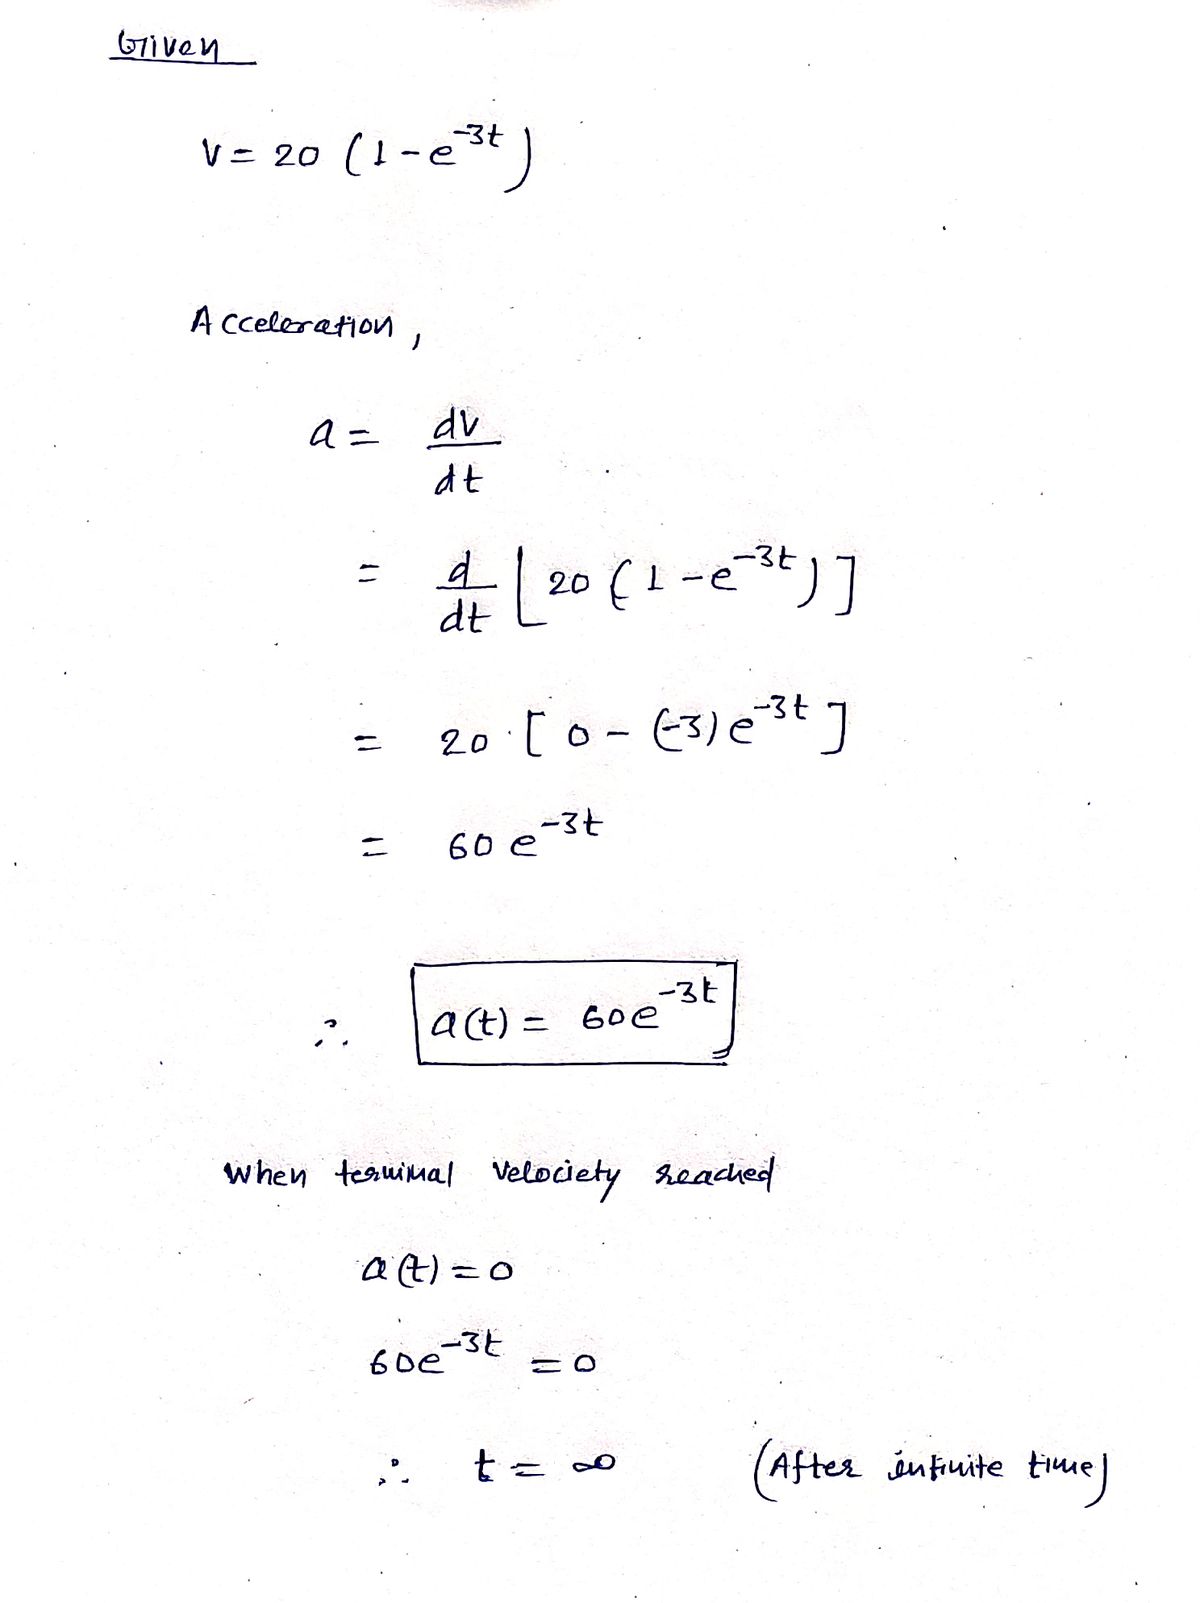 Given
V = 20 (1 - e^-3t)
Acceleration,
a = dv/dt
= d/dt [20 (1 - e^-3t)]
= 20 [0 - (-3) e^-3t]
= 60 e^-3t
∴ a(t) = 60e^-3t
When terminal Velociety reached
a(t) = 0
60e^-3t = 0
∴ t = ∞ (After infinite time)